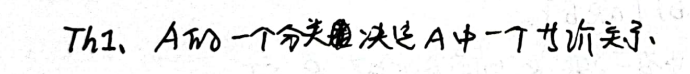 Th1、A的一个分类决定A中一个等价关系、